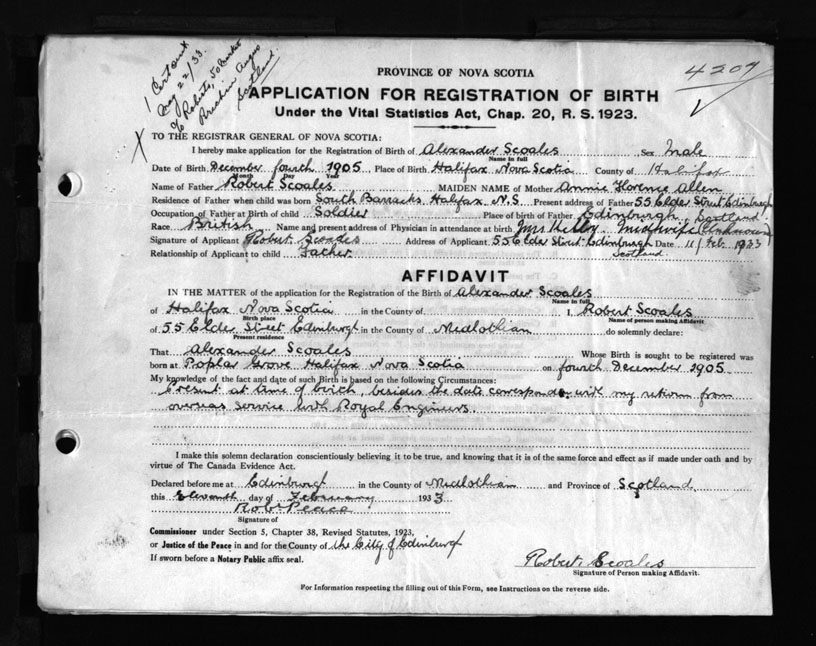 1 Cert sent
Aug 22/33.
℅ Roberts, 50 Market
Brechin Angus
Scotland
4207
PROVINCE OF NOVA SCOTIA
APPLICATION FOR REGISTRATION OF BIRTH
Under the Vital Statistics Act, Chap. 20, R. S. 1923.
X TO THE REGISTRAR GENERAL OF NOVA SCOTIA:
I hereby make application for the Registration of Birth of Alexander Scoales Sex Male
Name in full
Date of Birth December fourth 1905 Place of Birth Halifax Nova Scotia County of Halifax
Month Day Year
Name of Father Robert Scoales MAIDEN NAME of Mother Annie Florence Allen
Residence of Father when child was born South Barracks Halifax N.S. Present address of Father 55 Elder Street Edinburgh
Occupation of Father at Birth of child Soldier Place of birth of Father Edinburgh, Scotland.
Race British Name and present address of Physician in attendance at birth Mrs Kilby Midwife (Unknown)
Signature of Applicant Robert Scoales Address of Applicant 55 Elder Street Edinburgh Date 11/Feb. 1933
Scotland
Relationship of Applicant to child Father
AFFIDAVIT
IN THE MATTER of the application for the Registration of the Birth of Alexander Scoales
Name in full
of Halifax Nova Scotia in the County of I, Robert Scoales
Birth place Name of person making Affidavit
of 55 Elder Street Edinburgh in the County of Midlothian do solemnly declare:
Present residence
That Alexander Scoales Whose Birth is sought to be registered was
born at Poplar Grove Halifax Nova Scotia on fourth December 1905.
My knowledge of the fact and date of such Birth is based on the following Circumstances:
Present at time of birth, besides the date corresponds with my return from
overseas service with Royal Engineers.
I make this solemn declaration conscientiously believing it to be true, and knowing that it is of the same force and effect as if made under oath and by
virtue of The Canada Evidence Act.
Declared before me at Edinburgh in the County of Midlothian and Province of Scotland
this Eleventh day of February 1933
Robt Peace
Signature of
Commissioner under Section 5, Chapter 38, Revised Statutes, 1923,
or Justice of the Peace in and for the County of the City of Edinburgh
If sworn before a Notary Public affix seal.
Robert Scoales
Signature of Person making Affidavit.
For Information respecting the filling out of this Form, see Instructions on the reverse side.